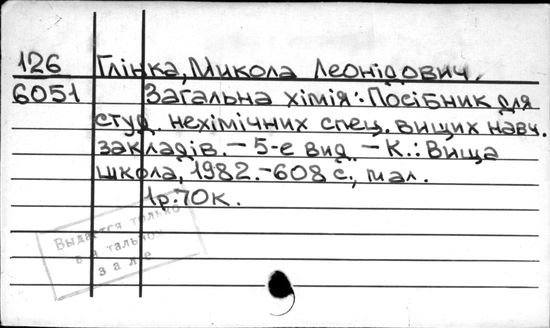 126 Глінка, Микола Леонідович.
6051 Загальна хімія: Посібник для
студ. нехімічних спец. вищих навч.
закладів. – 5-е вид. – К.: Вища
школа, 1982. – 608 с., мал.
1р.70к.
Выдается только
в тальном
зале